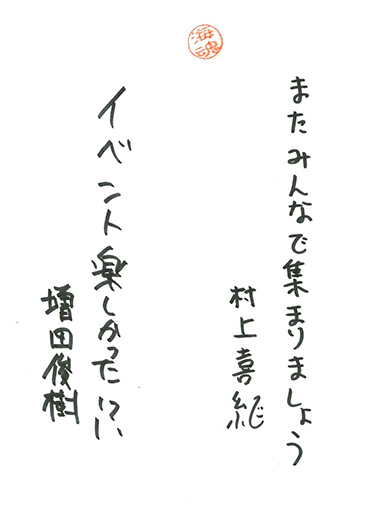 海魂
またみんなで集まりましょう
村上喜紀
イベント楽しかった
増田俊樹